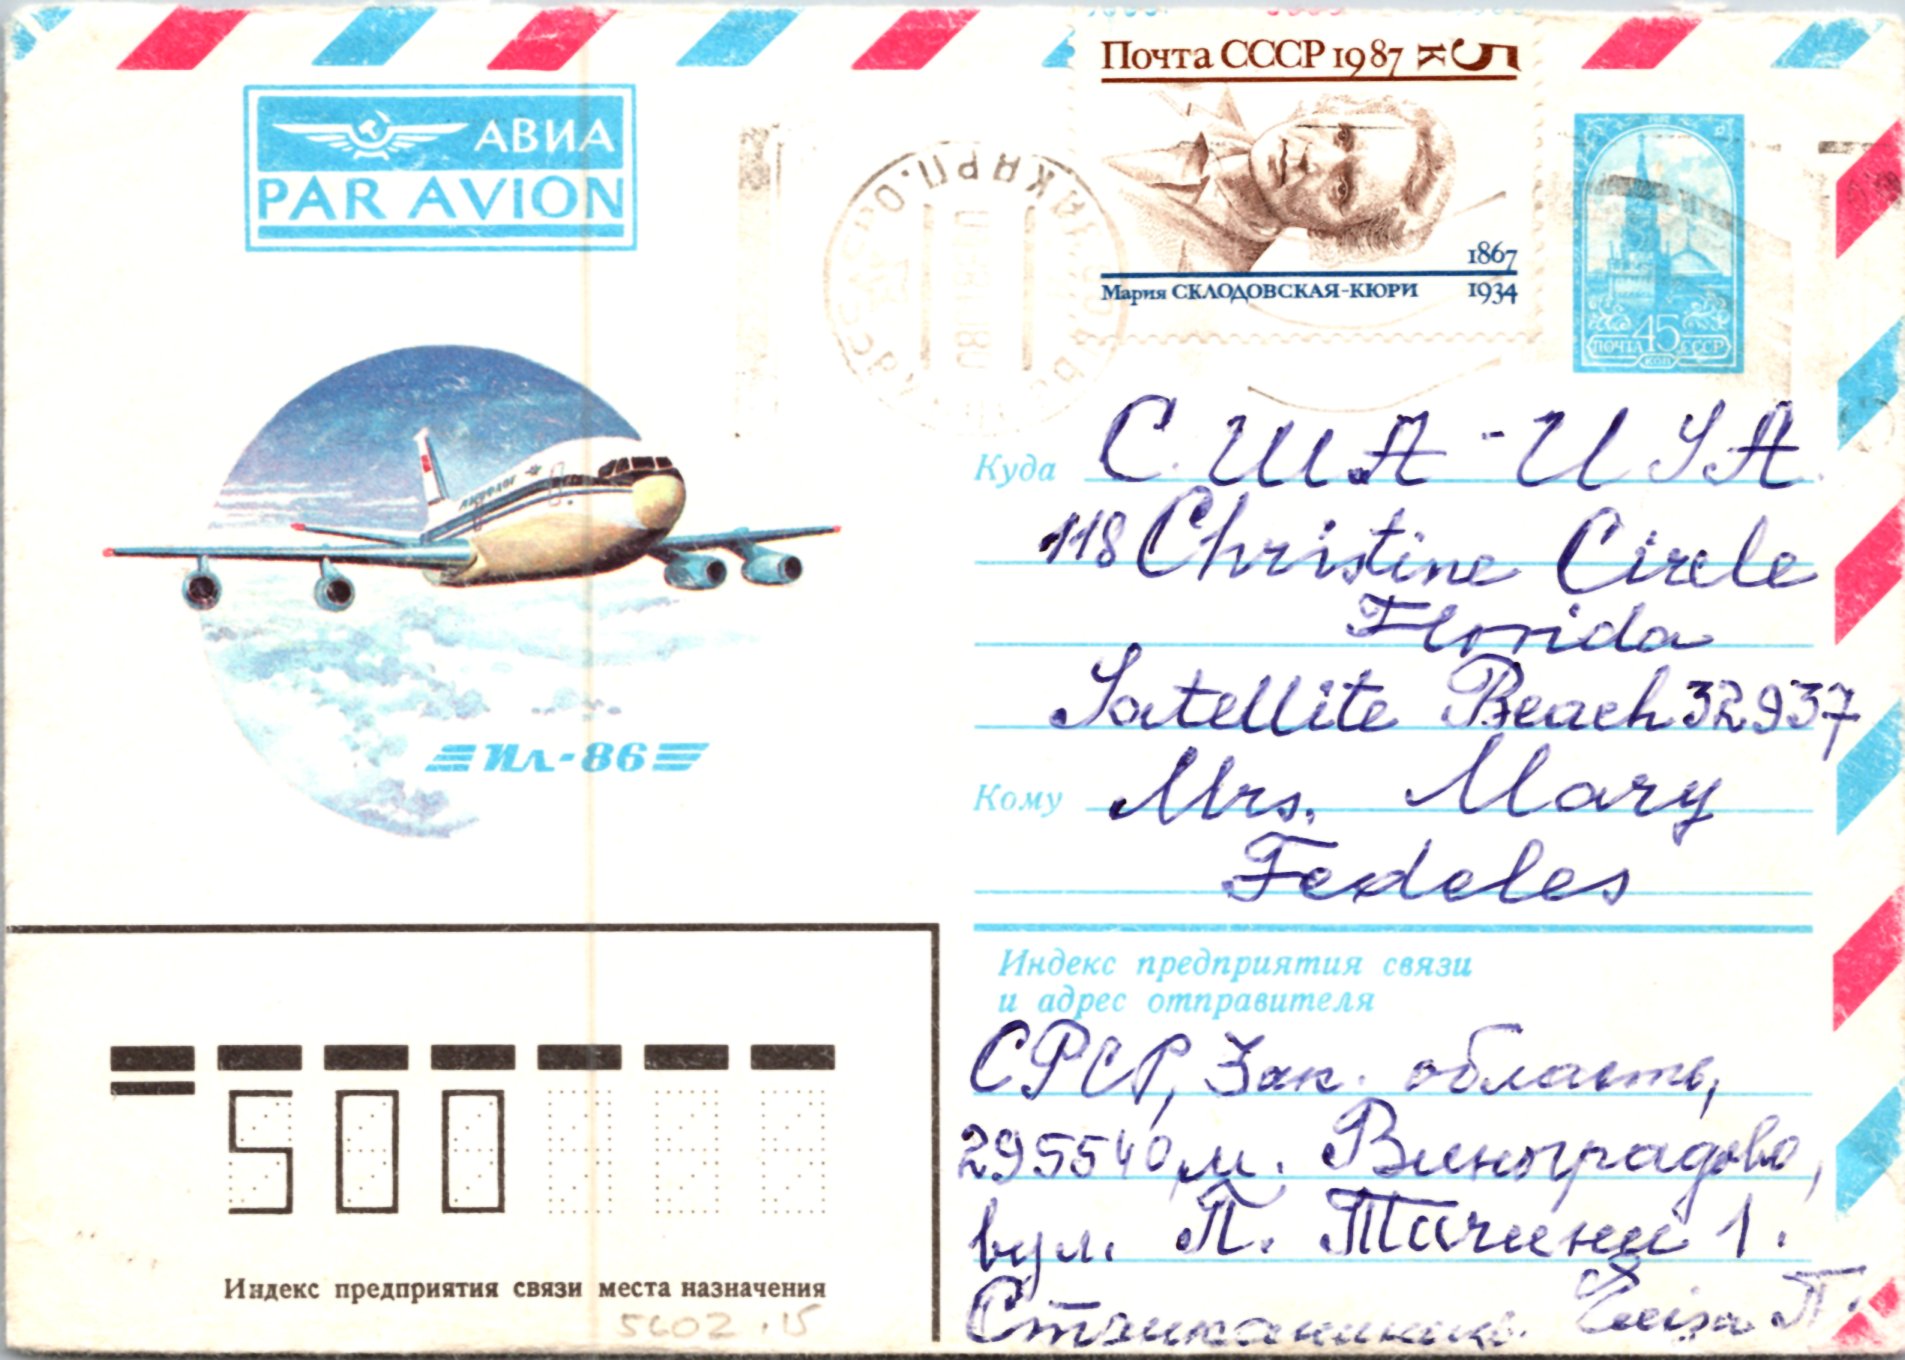 Почта СССР 1987 5 к
АВИА
PAR AVION
1867
Мария СКЛОДОВСКАЯ-КЮРИ 1934
ПОЧТА 45 СССР
КОП
Аэрофлот
Ил-86
Куда США - USA
118 Christine Circle
Florida
Satellite Beach 32937
Кому Mrs. Mary
Fedeles
Индекс предприятия связи
и адрес отправителя
СРСР, Зак. область,
295540, м. Виноградово,
вул. П. Тичини 1.
500
Индекс предприятия связи места назначения
5602.15